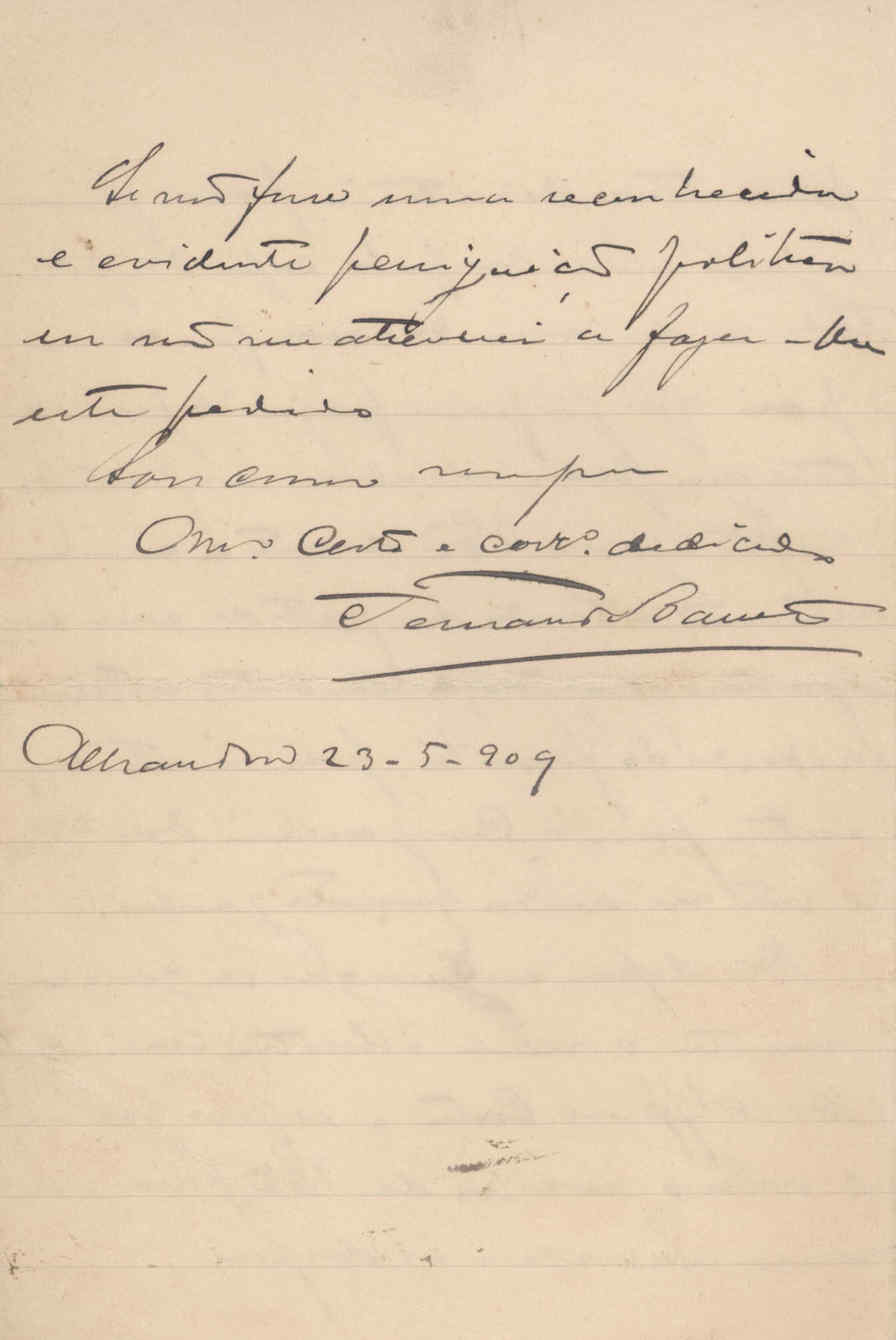 Se não fosse uma reconhecida
e evidente perseguição politica
eu não me atreveria a fazer-lhe
este pedido
Sou como sempre
Amº. Certo e corrº. dedicado
Fernando Barreto
Alhandra 23-5-909